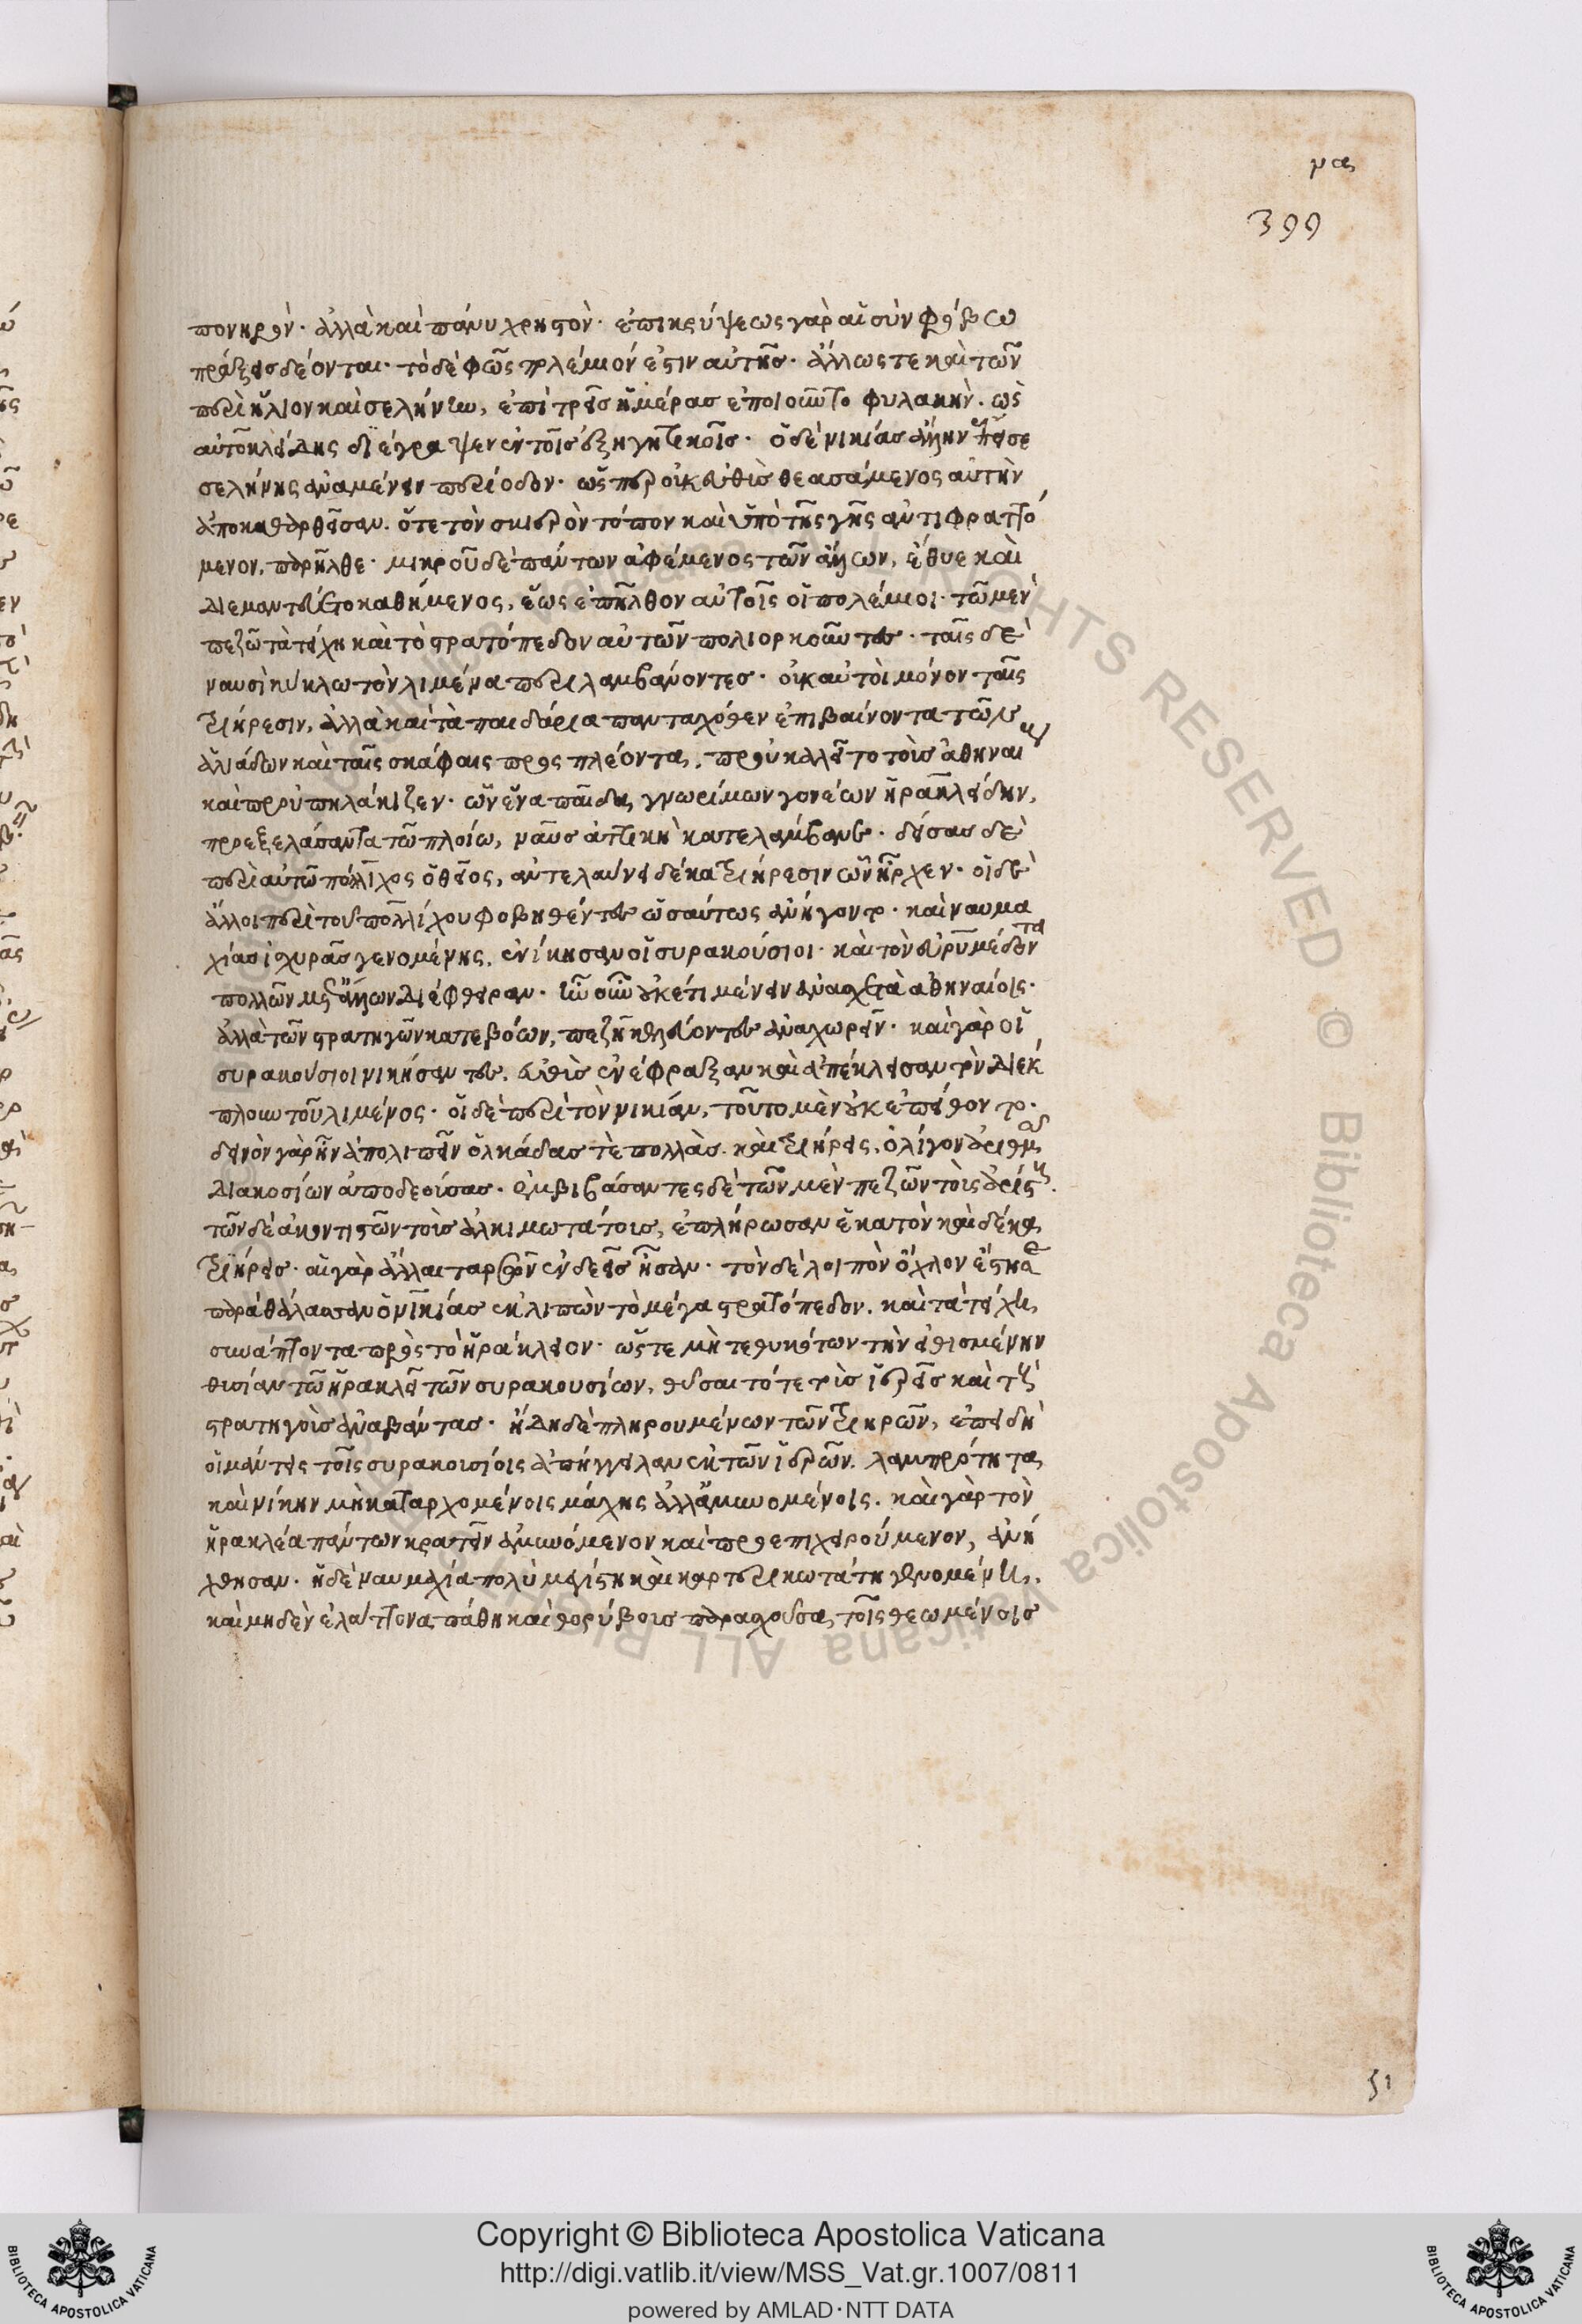 μα
399
πονηρὸν· ἀλλὰ καὶ πάνυ χρηστὸν· ἐπικρύψεως γὰρ αἱ σὺν φόβω
πράξεις δέονται· τὸ δὲ φῶς πολέμιόν ἐστιν αὐταῖς· ἄλλως τε καὶ τῶν
περὶ ἥλιον καὶ σελήνην, ἐπὶ τρεῖς ἡμέρας ἐποιοῦντο φυλακὴν. ὡς
αὐτοκλείδης διέγραψεν ἐν τοῖς ἐξηγητικοῖς· ὁ δὲ νικίας ἄλλην ἔπεισε
σελήνης ἀναμένειν περίοδον· ὥσπερ οὐκ εὐθὺς θεασάμενος αὐτὴν
ἀποκαθαρθεῖσαν. ὅτε τὸν σκιερὸν τόπον καὶ ὑπὸ τῆς γῆς ἀντιφραττό
μενον, παρῆλθε· μικροῦ δὲ πάντων ἀφέμενος τῶν ἄλλων, ἔθυε καὶ
διεμαντεύετο καθήμενος, ἕως ἐπῆλθον αὐτοῖς οἱ πολέμιοι· τῶ μὲν
πεζῶ τὰ τείχη καὶ τὸ στρατόπεδον αὐτῶν πολιορκοῦντες· ταῖς δὲ
ναυσὶ κύκλω τὸν λιμένα περιλαμβάνοντες· οὐκ αὐτοὶ μόνον ταῖς
τριήρεσιν, ἀλλὰ καὶ τὰ παιδάρια πανταχόθεν ἐπιβαίνοντα τῶν
ἁλιάδων καὶ ταῖς σκάφαις προσπλέοντα, προὐκαλεῖτο τοὺς ἀθηναίους
καὶ προὐπηλάκιζεν· ὧν ἕνα παῖδα, γνωρίμων γονέων ἡρακλείδην,
προεξελάσαντα τῶ πλοίω, ναῦς ἀττικὴ κατελάμβανε· δείσας δὲ
περὶ αὐτῶ πόλλιχος ὁ θεῖος, ἀντελαύνει δέκα τριήρεσιν ὧν ἦρχεν· οἱ δὲ
ἄλλοι περὶ τοῦ πολλίχου φοβηθέντες ὡσαύτως ἀνήγοντο· καὶ ναυμα
χίας ἰσχυρᾶς γενομένης, ἐνίκησαν οἱ συρακούσιοι· καὶ τὸν εὐρυμέδοντα
πολλῶν μετ' ἄλλων διέφθειραν· ἦν οὖν οὐκέτι μένειν ἀνασχετὰ ἀθηναίοις·
ἀλλὰ τῶν στρατηγῶν κατεβόων, πεζῆ κελεύοντες ἀναχωρεῖν· καὶ γὰρ οἱ
συρακούσιοι νικήσαντες, εὐθὺς ἐνέφραξαν καὶ ἀπέκλεισαν τὸν διέκ
πλουν τοῦ λιμένος· οἱ δὲ περὶ τὸν νικίαν, τοῦτο μὲν οὐκ ἐπείθοντο·
δεινὸν γὰρ ἦν ἀπολιπεῖν ὁλκάδας τὲ πολλὰς. καὶ τριήρεις, ὀλίγον ἀριθμὸν
διακοσίων ἀποδεούσας· ἐμβιβάσαντες δὲ τῶν μὲν πεζῶν τοὺς ἀρίστους.
τῶν δὲ ἀκοντιστῶν τοὺς ἀλκιμωτάτους, ἐπλήρωσαν ἑκατὸν καὶ δέκα
τριήρεις· αἱ γὰρ ἄλλαι ταρσῶν ἐνδεεῖς ἦσαν· τὸν δὲ λοιπὸν ὄχλον ἔστησε
παρὰ θάλασσαν ὁ νικίας ἐκλιπὼν τὸ μέγα στρατόπεδον. καὶ τὰ τείχη,
συνάπτοντα πρὸς τὸ ἡράκλειον· ὥστε μὴ τεθυκότων τὴν εἰθισμένην
θυσίαν τῶ ἡρακλεῖ τῶν συρακουσίων, θῦσαι τότε τοὺς ἱερεῖς καὶ τοὺς
στρατηγοὺς ἀναβάντας· ἤδη δὲ πληρουμένων τῶν τριηρῶν, ἐπειδὴ
οἱ μάντεις τοῖς συρακουσίοις ἀπήγγειλαν ἐκ τῶν ἱερῶν. λαμπρότητα
καὶ νίκην μὴ καταρχομένοις μάχης ἀλλ' ἀμυνομένοις. καὶ γὰρ τὸν
ἡρακλέα πάντων κρατεῖν ἀμυνόμενον καὶ προεπιχειρούμενον, ἀνή
χθησαν. ἡ δὲ ναυμαχία πολὺ μεγίστη καὶ καρτερικωτάτη γενομένη,
καὶ μηδὲν ἐλάττονα πάθη καὶ θορύβους παρασχοῦσα, τοῖς θεωμένοις
51
Copyright © Biblioteca Apostolica Vaticana
http://digi.vatlib.it/view/MSS_Vat.gr.1007/0811
powered by AMLAD·NTT DATA